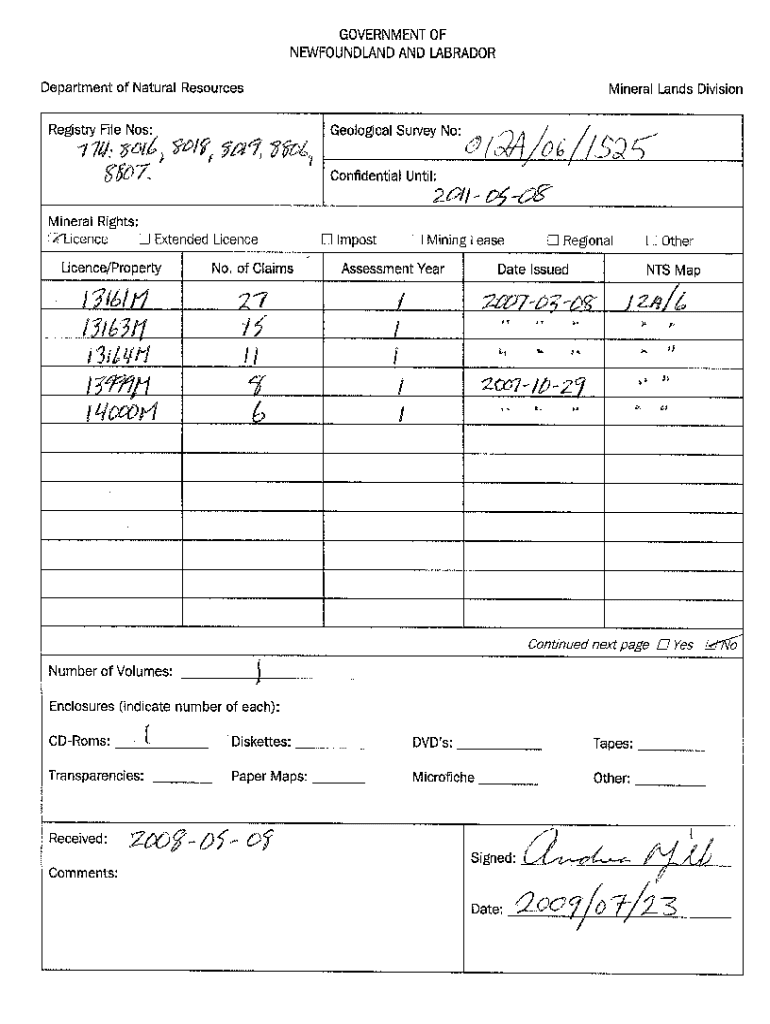 GOVERNMENT OF
NEWFOUNDLAND AND LABRADOR
Department of Natural Resources Mineral Lands Division
Registry File Nos: 774: 8016, 8018, 8019, 8806, 8807.
Geological Survey No: 012A/06/1525
Confidential Until: 2011-05-08
Mineral Rights:
Licence Extended Licence Impost Mining Lease Regional Other
Licence/Property No. of Claims Assessment Year Date Issued NTS Map
13161M 27 1 2007-03-08 12A/6
13163M 15 1 " " " " "
13164M 11 1 " " " " "
13999M 8 1 2007-10-29 " "
14000M 6 1 " " " " "
Continued next page Yes No
Number of Volumes: 1
Enclosures (indicate number of each):
CD-Roms: 1 Diskettes: DVD's: Tapes:
Transparencies: Paper Maps: Microfiche Other:
Received: 2008-05-08
Comments:
Signed: Andrea Mills
Date: 2009/07/23